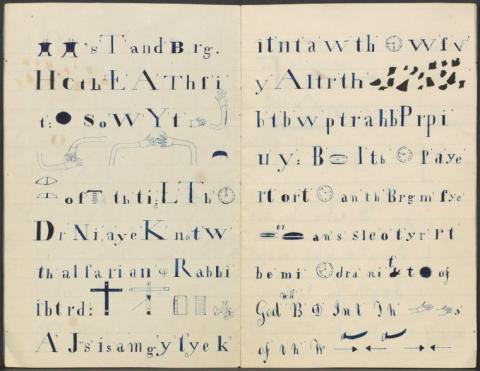 's T and B r g.
H c t h E A T h f i
t: s o W Y t
o f T t h t i ; L T h
D r N i , a y e K n o t w
t h a l f a r i a n & R a b b i
i b t r d :
A J s i s a m g y t y e k
i t n t a w t h w f v
y A l t r t h
b t b w p t r a h b P r p i
u y : B I t h P a y e
r t o r t a n t h B r g m f y e
a n s s l e o t y r r t
b e m i d r a n i t & t o f
God B D I n t I h s
o f t h W